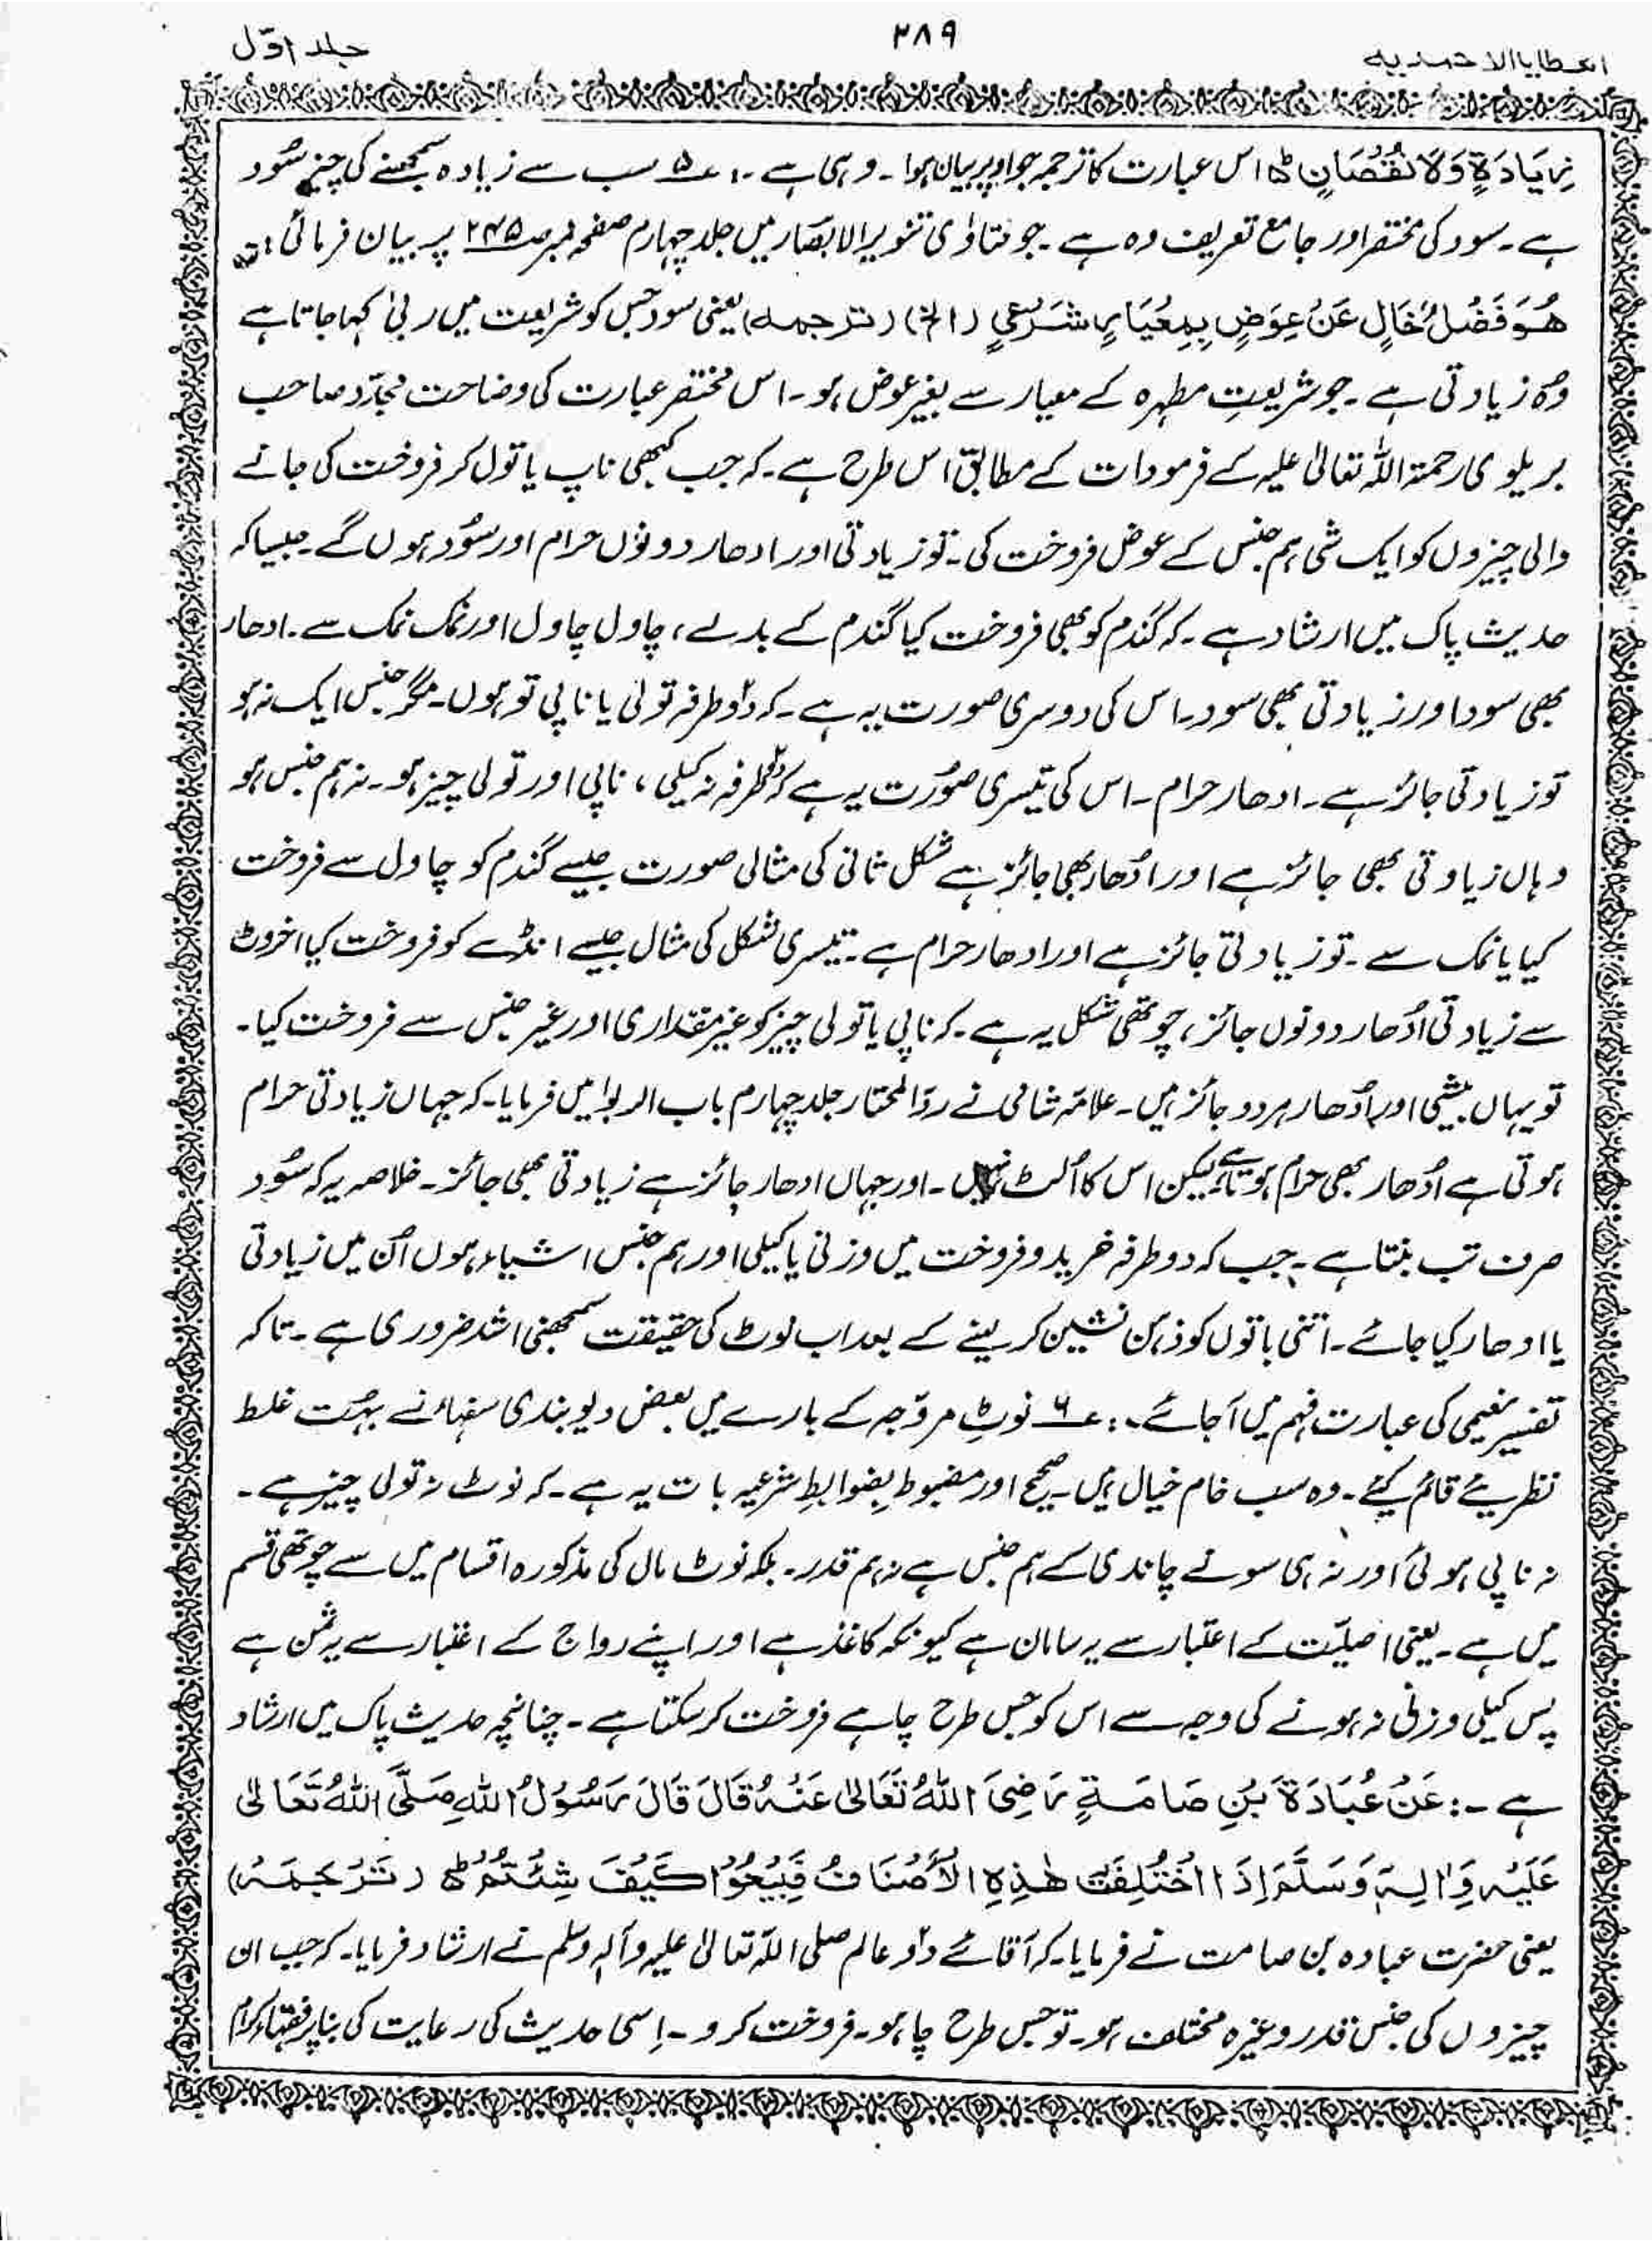 العطایا الاحمدیہ
۳۸۹
جلد اوّل
زِيَادَةٍ وَلَا نُقْصَانٍ ط اس عبارت کا ترجمہ جو اوپر بیان ہوا ۔ وہی ہے ۔: ع۵ سب سے زیادہ سمجھنے کی چیز سُود
ہے ۔ سود کی مختصر اور جامع تعریف وہ ہے ۔ جو فتاوٰی تنویر الابصار میں جلد چہارم صفحہ نمبر صـ۲۴۵ پر بیان فرمائی :
هُوَ فَضْلٌ خَالٍ عَنْ عِوَضٍ بِمِعْيَارٍ شَرْعِيٍّ (الخ) (ترجمہ) یعنی سود جس کو شریعت میں ربیٰ کہا جاتا ہے
وہ زیادتی ہے ۔ جو شریعتِ مطہرہ کے معیار سے بغیر عوض ہو ۔ اس مختصر عبارت کی وضاحت مجدّد صاحب
بریلوی رحمۃ اللہ تعالیٰ علیہ کے فرمودات کے مطابق اس طرح ہے ۔ کہ جب کبھی ناپ یا تول کر فروخت کی جانے
والی چیزوں کو ایک شی ہم جنس کے عوض فروخت کی ۔ تو زیادتی اور ادھار دونوں حرام اور سُود ہوں گے ۔ جیسا کہ
حدیث پاک میں ارشاد ہے ۔ کہ گندم کو بھی فروخت کیا گندم کے بدلے ، چاول چاول اور نمک نمک سے ۔ ادھار
بھی سود اور زیادتی بھی سود ۔ اس کی دوسری صورت یہ ہے ۔ کہ دو طرفہ تولی یا ناپی تو ہوں ۔ مگر جنس ایک نہ ہو
تو زیادتی جائز ہے ۔ ادھار حرام ۔ اس کی تیسری صُورت یہ ہے کہ دو طرفہ نہ کیلی ، ناپی اور تولی چیز ہو ۔ نہ ہم جنس ہو
وہاں زیادتی بھی جائز ہے اور ادُھار بھی جائز ہے شکل ثانی کی مثالی صورت جیسے گندم کو چاول سے فروخت
کیا یا نمک سے ۔ تو زیادتی جائز ہے اور ادھار حرام ہے ۔ تیسری شکل کی مثال جیسے انڈے کو فروخت کیا اخروٹ
سے زیادتی ادُھار دونوں جائز ، چوتھی شکل یہ ہے ۔ کہ ناپی یا تولی چیز کو غیر مقداری اور غیر جنس سے فروخت کیا ۔
تو یہاں بیشی اور ادُھار ہر دو جائز ہیں ۔ علامّہ شامی نے ردّ المحتار جلد چہارم باب الربوا میں فرمایا ۔ کہ جہاں زیادتی حرام
ہوتی ہے ادُھار بھی حرام ہوتا ہے لیکن اس کا اُلٹ نہیں ۔ اور جہاں ادھار جائز ہے زیادتی بھی جائز ۔ خلاصہ یہ کہ سُود
صرف تب بنتا ہے ۔ جب کہ دو طرفہ خرید و فروخت میں وزنی یا کیلی اور ہم جنس اشیاء ہوں اُن میں زیادتی
یا ادھار کیا جائے ۔ اتنی باتوں کو ذہن نشین کر لینے کے بعد اب نوٹ کی حقیقت سمجھنی اشد ضروری ہے ۔ تا کہ
تفسیر نعیمی کی عبارت فہم میں آ جائے ۔: ع۶ نوٹِ مروّجہ کے بارے میں بعض دیوبندی سفہاء نے بہُت غلط
نظریئے قائم کیے ۔ وہ سب خام خیال ہیں ۔ صحیح اور مضبوط بضوابطِ شرعیہ بات یہ ہے ۔ کہ نوٹ نہ تولی چیز ہے ۔
نہ ناپی ہوئی اور نہ ہی سونے چاندی کے ہم جنس ہے نہ ہم قدر ۔ بلکہ نوٹ مال کی مذکورہ اقسام میں سے چوتھی قسم
میں ہے ۔ یعنی اصلیّت کے اعتبار سے یہ سامان ہے کیونکہ کاغذ ہے اور اپنے رواج کے اعتبار سے یہ ثمن ہے
پس کیلی وزنی نہ ہونے کی وجہ سے اس کو جس طرح چاہے فروخت کر سکتا ہے ۔ چنانچہ حدیث پاک میں ارشاد
ہے ۔: عَنْ عُبَادَةَ بْنِ صَامَةٍ رَضِيَ اللّٰهُ تَعَالٰی عَنْهُ قَالَ قَالَ رَسُوْلُ اللّٰهِ صَلَّی اللّٰهُ تَعَالٰی
عَلَيْهِ وَاٰلِهٖ وَسَلَّمَ اِذَا اخْتُلِفَتْ هٰذِهِ الْاَصْنَافُ فَبِيْعُوْا كَيْفَ شِئْتُمْ ط (تَرْجَمَہ)
یعنی حضرت عبادہ بن صامت نے فرمایا ۔ کہ آقائے دو عالم صلی اللہ تعالیٰ علیہ وآلہٖ وسلم نے ارشاد فرمایا ۔ کہ جب ان
چیزوں کی جنس قدر وغیرہ مختلف ہو ۔ تو جس طرح چاہو ۔ فروخت کرو ۔ اِسی حدیث کی رعایت کی بنا پر فقہاء کرام